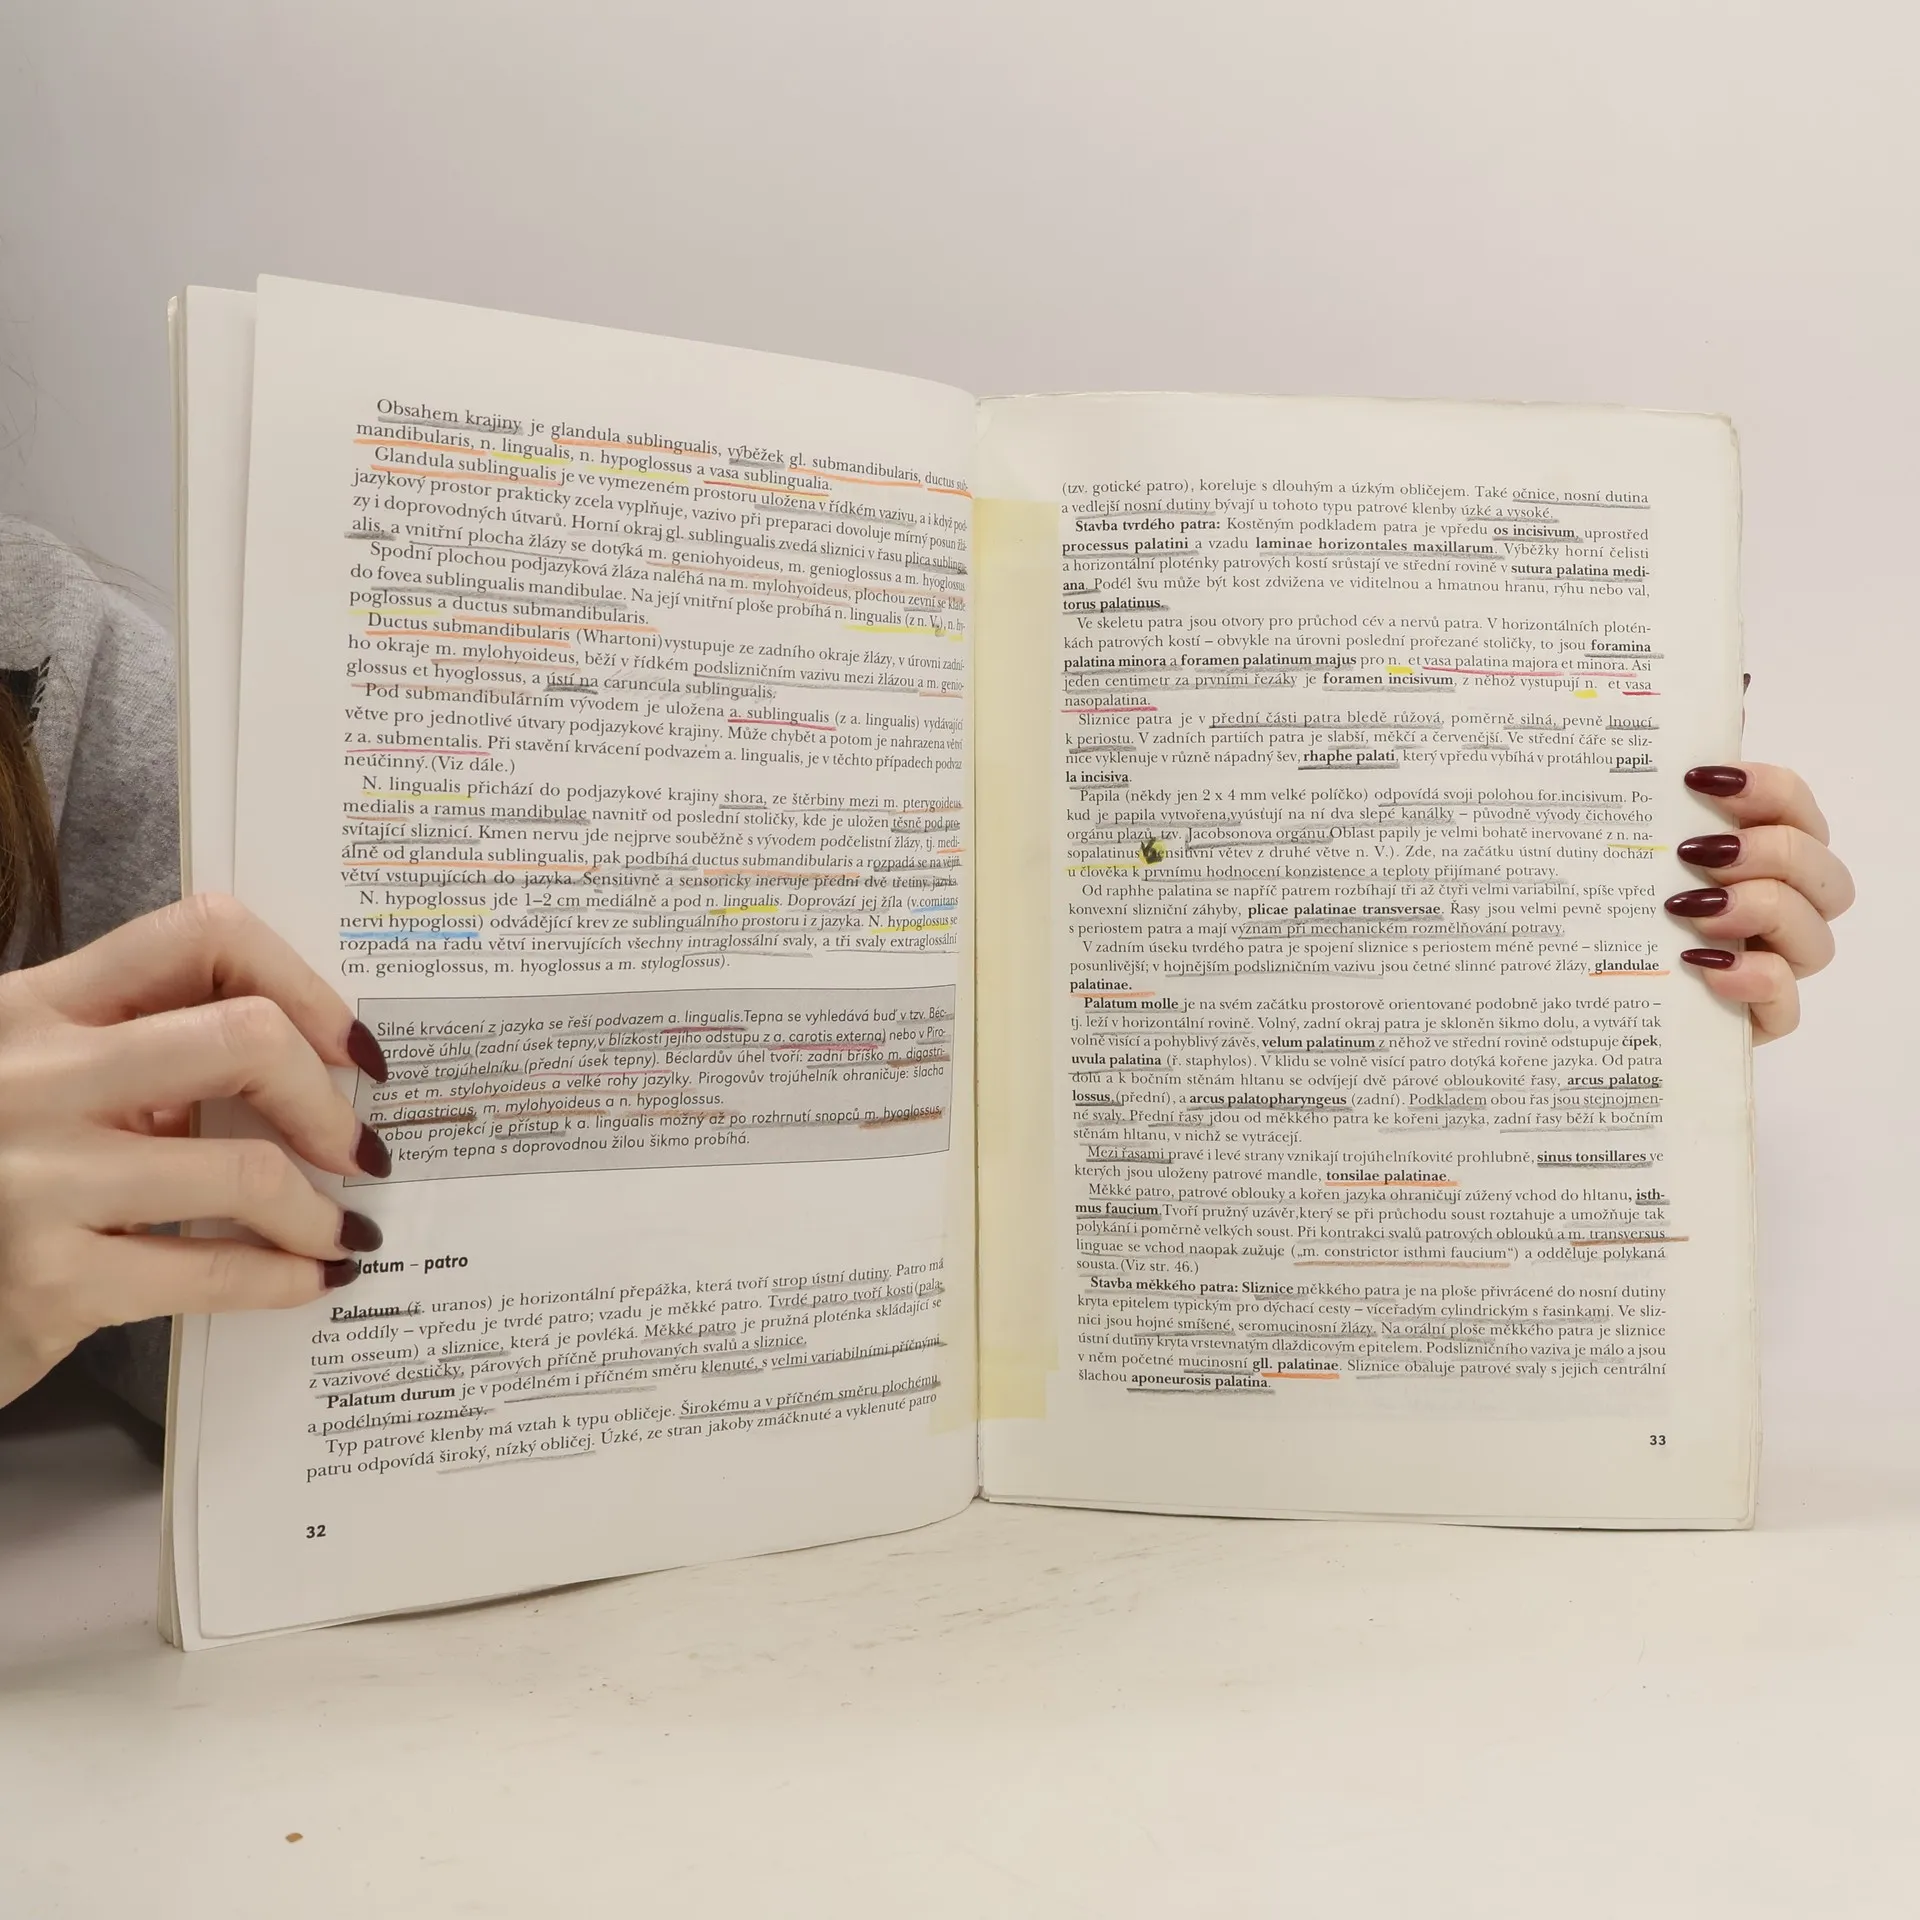 Obsahem krajiny je glandula sublingualis, výběžek gl. submandibularis, ductus sub-
mandibularis, n. lingualis, n. hypoglossus a vasa sublingualia.
Glandula sublingualis je ve vymezeném prostoru uložena v řídkém vazivu, a i když pod-
jazykový prostor prakticky zcela vyplňuje, vazivo při preparaci dovoluje mírný posun žlá-
zy i doprovodných útvarů. Horní okraj gl. sublingualis zvedá sliznici v řasu plica sublingu-
alis, a vnitřní plocha žlázy se dotýká m. geniohyoideus, m. genioglossus a m. hyoglossus
Spodní plochou podjazyková žláza naléhá na m. mylohyoideus, plochou zevní se klade
do fovea sublingualis mandibulae. Na její vnitřní ploše probíhá n. lingualis (z n. V3), n. hy-
poglossus a ductus submandibularis.
Ductus submandibularis (Whartoni) vystupuje ze zadního okraje žlázy, v úrovni zadní-
ho okraje m. mylohyoideus, běží v řídkém podslizničním vazivu mezi žlázou a m. genio-
glossus et hyoglossus, a ústí na caruncula sublingualis.
Pod submandibulárním vývodem je uložena a. sublingualis (z a. lingualis) vydávající
větve pro jednotlivé útvary podjazykové krajiny. Může chybět a potom je nahrazena větví
z a. submentalis. Při stavění krvácení podvazem a. lingualis, je v těchto případech podvaz
neúčinný. (Viz dále.)
N. lingualis přichází do podjazykové krajiny shora, ze štěrbiny mezi m. pterygoideus
medialis a ramus mandibulae navnitř od poslední stoličky, kde je uložen těsně pod pro-
svítající sliznicí. Kmen nervu jde nejprve souběžně s vývodem podčelistní žlázy, tj. medi-
álně od glandula sublingualis, pak podbíhá ductus submandibularis a rozpadá se na vějíř
větví vstupujících do jazyka. Sensitivně a sensoricky inervuje přední dvě třetiny jazyka.
N. hypoglossus jde 1–2 cm mediálně a pod n. lingualis. Doprovází jej žíla (v.comitans
nervi hypoglossi) odvádějící krev ze sublinguálního prostoru i z jazyka. N. hypoglossus se
rozpadá na řadu větví inervujících všechny intraglossální svaly, a tři svaly extraglossální
(m. genioglossus, m. hyoglossus a m. styloglossus).
Silné krvácení z jazyka se řeší podvazem a. lingualis. Tepna se vyhledává buď v tzv. Béc-
ardově úhlu (zadní úsek tepny, v blízkosti jejího odstupu z a. carotis externa) nebo v Piro-
ovově trojúhelníku (přední úsek tepny). Béclardův úhel tvoří: zadní bříško m. digastri-
cus et m. stylohyoideus a velké rohy jazylky. Pirogovův trojúhelník ohraničuje: šlacha
m. digastricus, m. mylohyoideus a n. hypoglossus.
obou projekcí je přístup k a. lingualis možný až po rozhrnutí snopců m. hyoglossus,
kterým tepna s doprovodnou žilou šikmo probíhá.
latum – patro
Palatum (ř. uranos) je horizontální přepážka, která tvoří strop ústní dutiny. Patro má
dva oddíly – vpředu je tvrdé patro; vzadu je měkké patro. Tvrdé patro tvoří kosti (pala-
tum osseum) a sliznice, která je povléká. Měkké patro je pružná ploténka skládající se
z vazivové destičky, párových příčně pruhovaných svalů a sliznice.
Palatum durum je v podélném i příčném směru klenuté, s velmi variabilními příčnými
a podélnými rozměry.
Typ patrové klenby má vztah k typu obličeje. Širokému a v příčném směru plochému
patru odpovídá široký, nízký obličej. Úzké, ze stran jakoby zmáčknuté a vyklenuté patro
32
(tzv. gotické patro), koreluje s dlouhým a úzkým obličejem. Také očnice, nosní dutina
a vedlejší nosní dutiny bývají u tohoto typu patrové klenby úzké a vysoké.
Stavba tvrdého patra: Kostěným podkladem patra je vpředu os incisivum, uprostřed
processus palatini a vzadu laminae horizontales maxillarum. Výběžky horní čelisti
a horizontální ploténky patrových kostí srůstají ve střední rovině v sutura palatina medi-
ana. Podél švu může být kost zdvižena ve viditelnou a hmatnou hranu, rýhu nebo val,
torus palatinus.
Ve skeletu patra jsou otvory pro průchod cév a nervů patra. V horizontálních plotén-
kách patrových kostí – obvykle na úrovni poslední prořezané stoličky, to jsou foramina
palatina minora a foramen palatinum majus pro n. et vasa palatina majora et minora. Asi
jeden centimetr za prvními řezáky je foramen incisivum, z něhož vystupují n. et vasa
nasopalatina.
Sliznice patra je v přední části patra bledě růžová, poměrně silná, pevně lnoucí
k periostu. V zadních partiích patra je slabší, měkčí a červenější. Ve střední čáře se sliz-
nice vyklenuje v různě nápadný šev, rhaphe palati, který vpředu vybíhá v protáhlou papil-
la incisiva.
Papila (někdy jen 2 x 4 mm velké políčko) odpovídá svoji polohou for.incisivum. Po-
kud je papila vytvořena,vyúsťují na ní dva slepé kanálky – původně vývody čichového
orgánu plazů, tzv. Jacobsonova orgánu.Oblast papily je velmi bohatě inervované z n. na-
sopalatinus sensitivní větev z druhé větve n. V.). Zde, na začátku ústní dutiny dochází
u člověka k prvnímu hodnocení konzistence a teploty přijímané potravy.
Od raphhe palatina se napříč patrem rozbíhají tři až čtyři velmi variabilní, spíše vpřed
konvexní slizniční záhyby, plicae palatinae transversae. Řasy jsou velmi pevně spojeny
s periostem patra a mají význam při mechanickém rozmělňování potravy.
V zadním úseku tvrdého patra je spojení sliznice s periostem méně pevné – sliznice je
posunlivější; v hojnějším podslizničním vazivu jsou četné slinné patrové žlázy, glandulae
palatinae.
Palatum molle je na svém začátku prostorově orientované podobně jako tvrdé patro –
tj. leží v horizontální rovině. Volný, zadní okraj patra je skloněn šikmo dolu, a vytváří tak
volně visící a pohyblivý závěs, velum palatinum z něhož ve střední rovině odstupuje čípek,
uvula palatina (ř. staphylos). V klidu se volně visící patro dotýká kořene jazyka. Od patra
dolu a k bočním stěnám hltanu se odvíjejí dvě párové obloukovité řasy, arcus palatog-
lossus,(přední), a arcus palatopharyngeus (zadní). Podkladem obou řas jsou stejnojmen-
né svaly. Přední řasy jdou od měkkého patra ke kořeni jazyka, zadní řasy běží k bočním
stěnám hltanu, v nichž se vytrácejí.
Mezi řasami pravé i levé strany vznikají trojúhelníkovité prohlubně, sinus tonsillares ve
kterých jsou uloženy patrové mandle, tonsilae palatinae.
Měkké patro, patrové oblouky a kořen jazyka ohraničují zúžený vchod do hltanu, isth-
mus faucium.Tvoří pružný uzávěr,který se při průchodu soust roztahuje a umožňuje tak
polykání i poměrně velkých soust. Při kontrakci svalů patrových oblouků a m. transversus
linguae se vchod naopak zužuje („m. constrictor isthmi faucium“) a odděluje polykaná
sousta.(Viz str. 46.)
Stavba měkkého patra: Sliznice měkkého patra je na ploše přivrácené do nosní dutiny
kryta epitelem typickým pro dýchací cesty – víceřadým cylindrickým s řasinkami. Ve sliz-
nici jsou hojné smíšené, seromucinosní žlázy. Na orální ploše měkkého patra je sliznice
ústní dutiny kryta vrstevnatým dlaždicovým epitelem. Podslizničního vaziva je málo a jsou
v něm početné mucinosní gll. palatinae. Sliznice obaluje patrové svaly s jejich centrální
šlachou aponeurosis palatina.
33